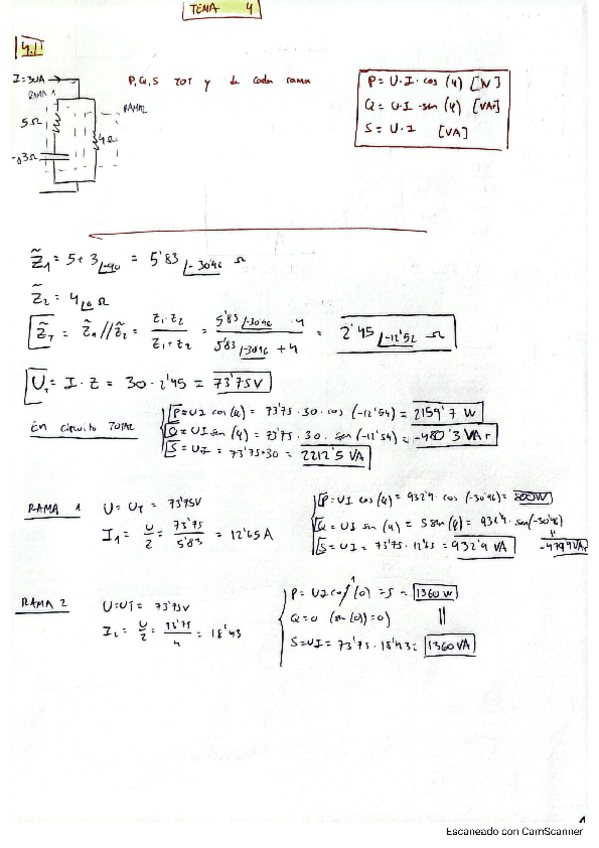 TEMA 4
4.1
I = 30A
P, Q, S TOT y de cada rama
P = U·I·cos(φ) [W]
Q = U·I·sen(φ) [VAr]
S = U·I [VA]
RAMA 1
RAMA 2
5Ω
4Ω
-j3Ω
Z̃1 = 5+3∠-90 = 5'83∠-30'96 Ω
Z̃2 = 4∠0 Ω
Z̃T = Z̃1 // Z̃2 = Z1·Z2 / Z1+Z2 = 5'83∠-30'96 · 4 / 5'83∠-30'96 + 4 = 2'45∠-12'52 Ω
UT = I·Z = 30·2'45 = 73'75V
En circuito TOTAL
P = UI cos(φ) = 73'75·30·cos(-12'54) = 2159'7 W
Q = UI sen(φ) = 73'75·30·sen(-12'54) = -480'3 VAr
S = UI = 73'75·30 = 2212'5 VA
RAMA 1
U = UT = 73'75V
I1 = U/Z = 73'75/5'83 = 12'65A
P = UI cos(φ) = 932'9·cos(-30'96) = 800W
Q = UI sen(φ) = S sen(φ) = 932'9·sen(-30'96)
= -479'9VAr
S = UI = 73'75·12'65 = 932'9 VA
RAMA 2
U = UT = 73'75V
I2 = U/Z = 73'75/4 = 18'43
P = UI cos(0) = S = 1360 W
1
Q = 0 (sen(0) = 0)
S = UI = 73'75·18'43 = 1360 VA
1
Escaneado con CamScanner